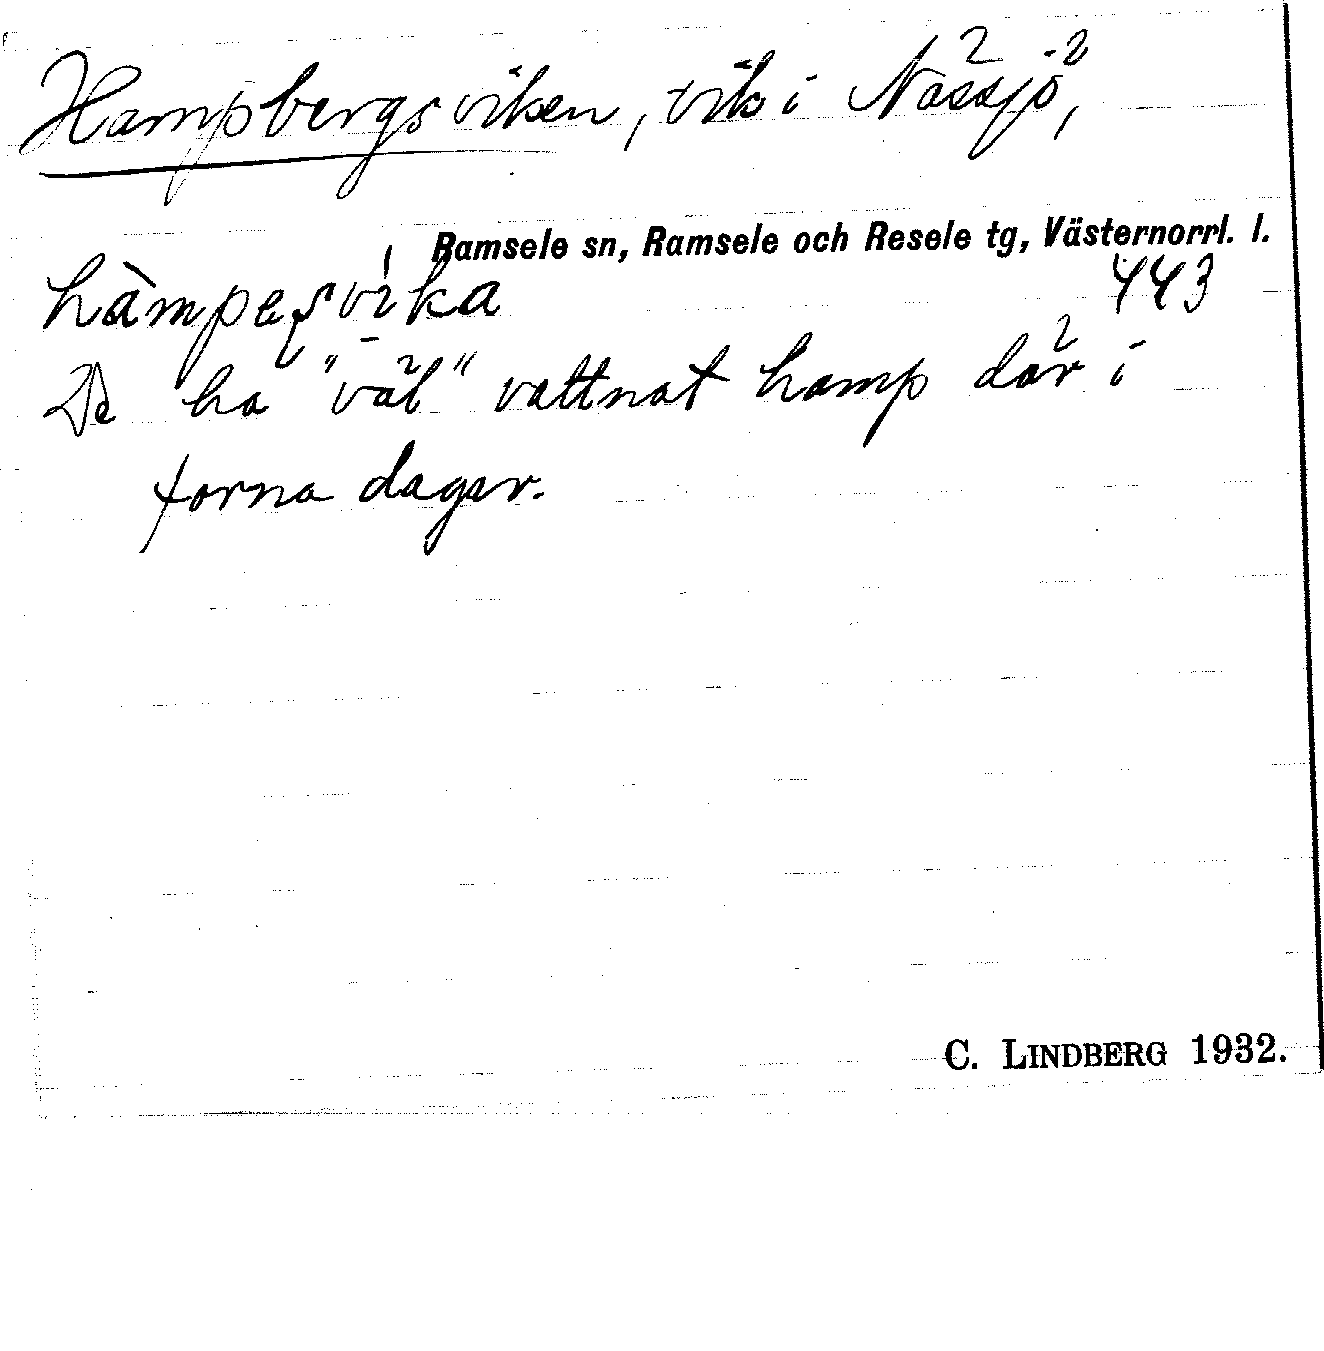 Hampbergsviken, vik i Nässjö,
Ramsele sn, Ramsele och Resele tg, Västernorrl. l.
443
De ha "väl" vattnat hamp där i
forna dager.
C. LINDBERG 1932.